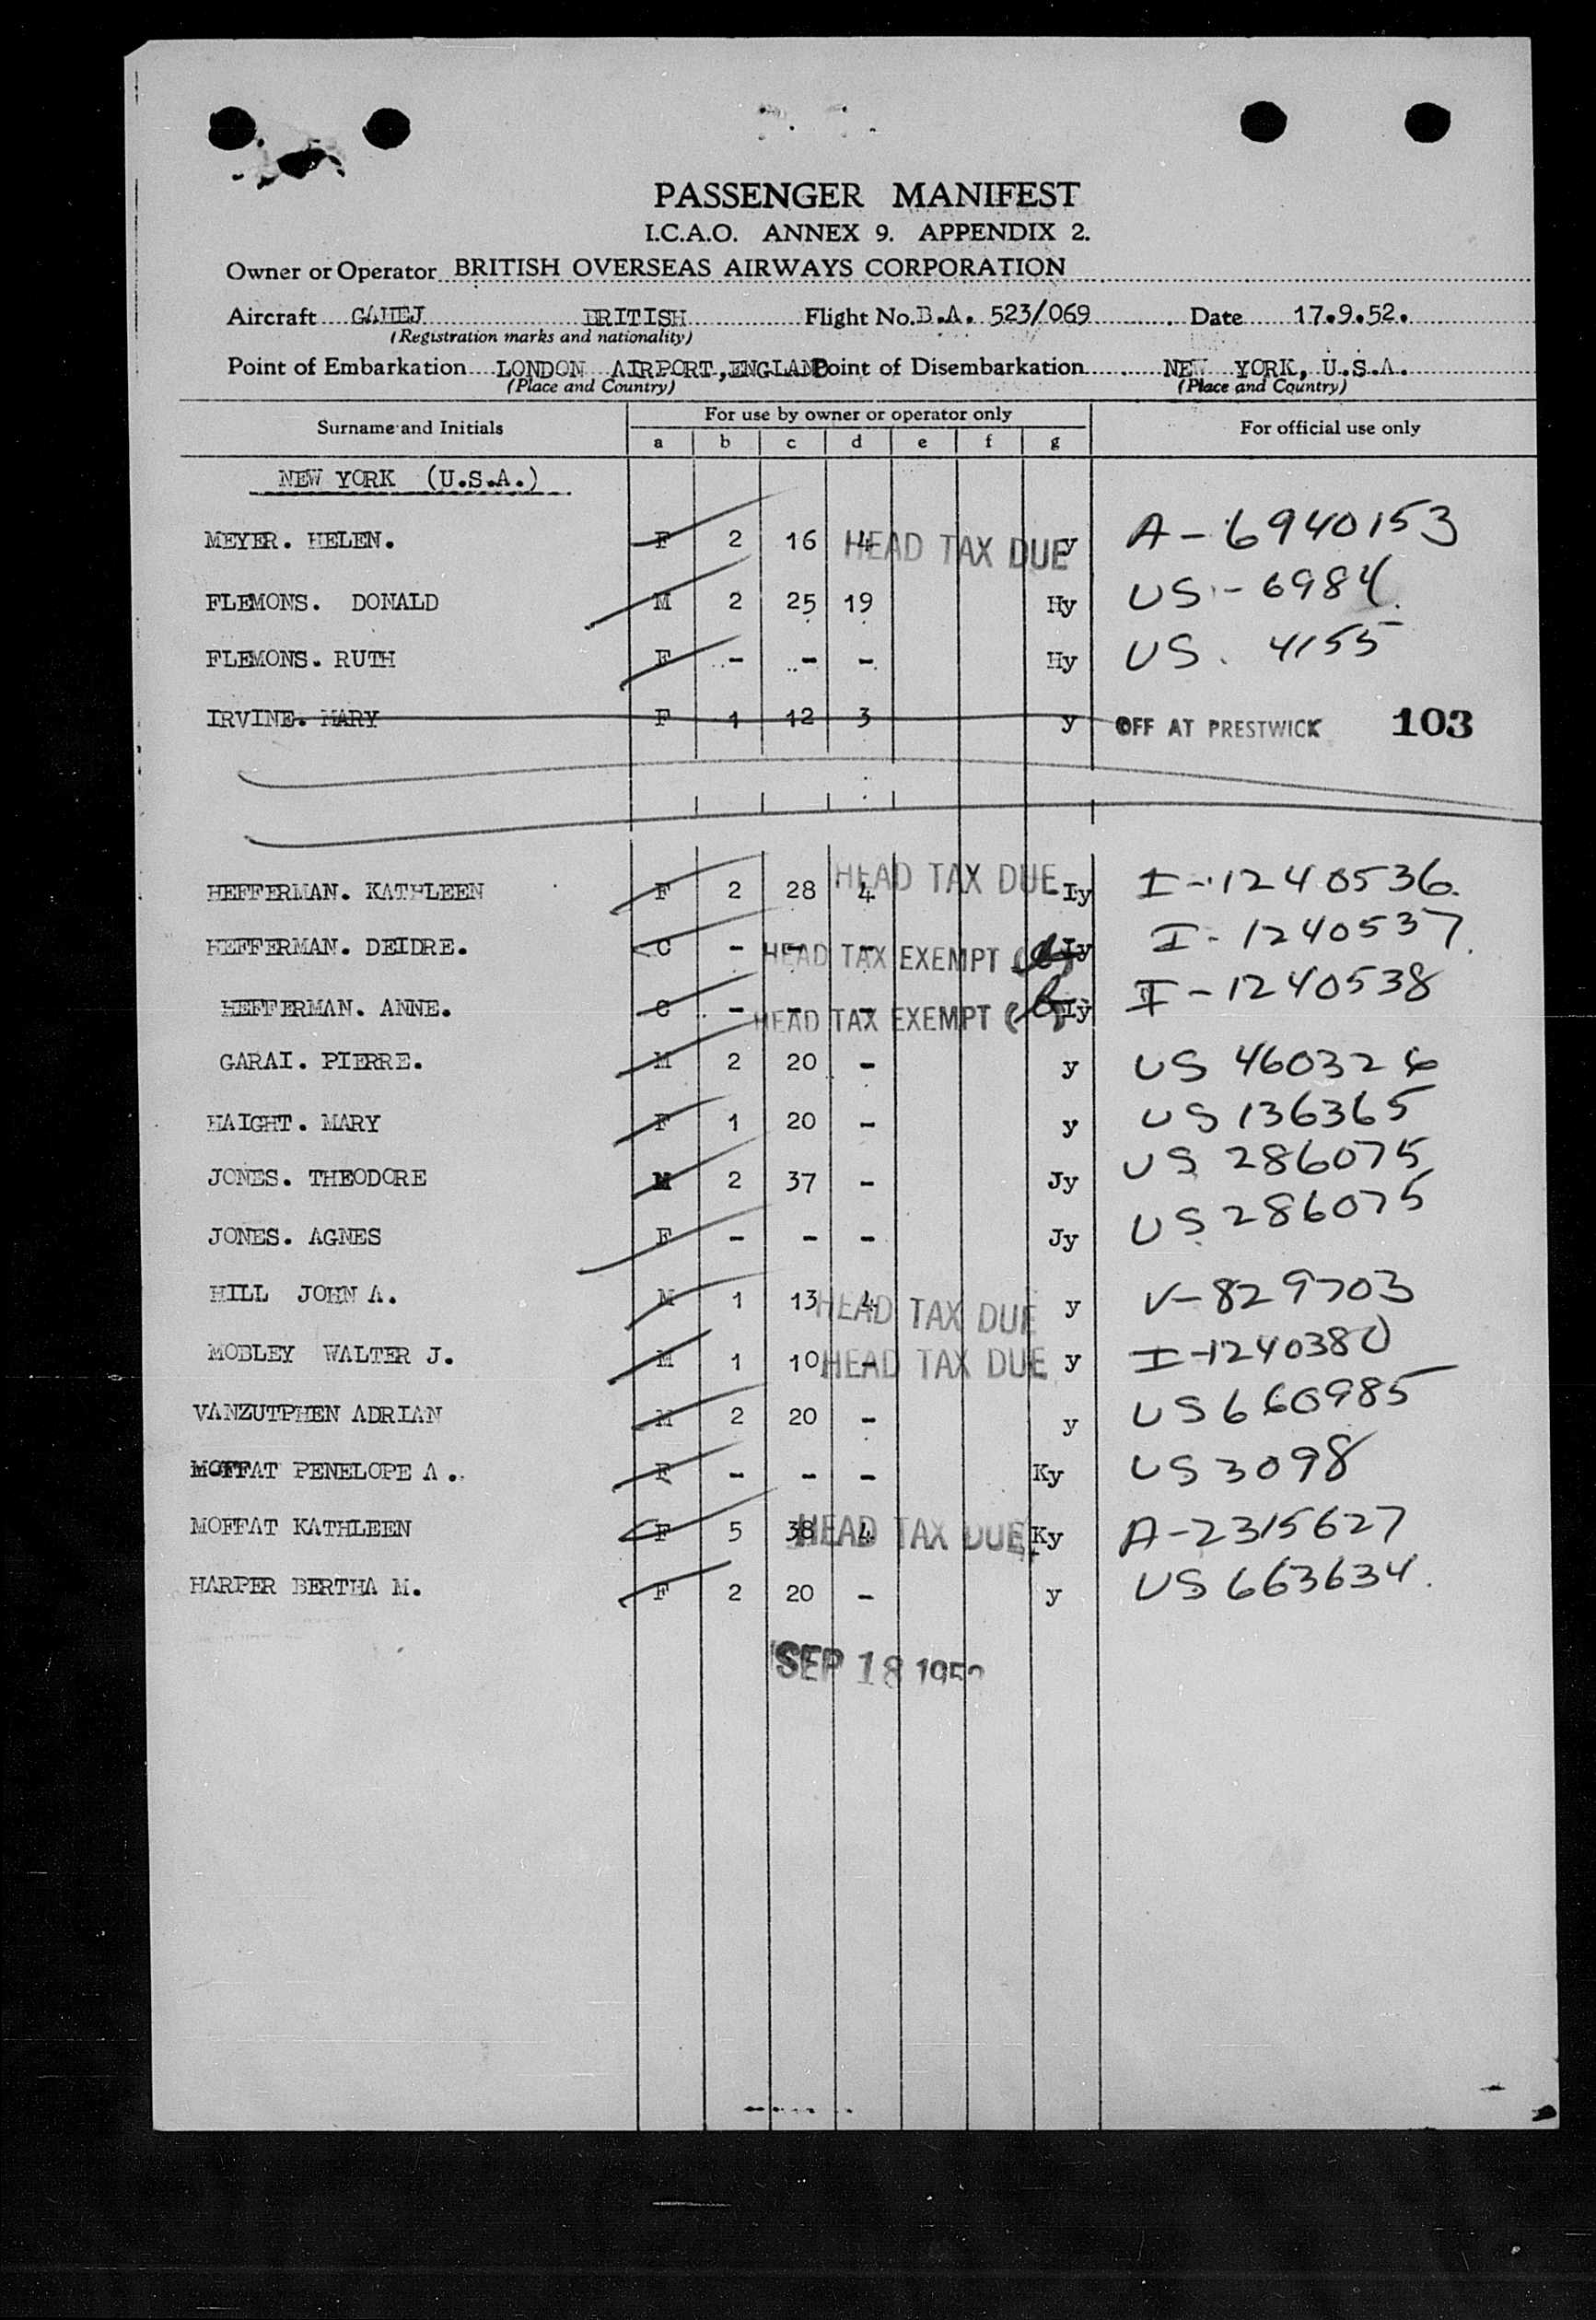 PASSENGER MANIFEST
I.C.A.O. ANNEX 9. APPENDIX 2.
Owner or Operator BRITISH OVERSEAS AIRWAYS CORPORATION
Aircraft GAHEJ BRITISH Flight No. B.A. 523/069 Date 17.9.52.
(Registration marks and nationality)
Point of Embarkation LONDON AIRPORT, ENGLAND Point of Disembarkation NEW YORK, U.S.A.
(Place and Country) (Place and Country)
Surname and Initials For use by owner or operator only For official use only
a b c d e f g
NEW YORK (U.S.A.)
MEYER. HELEN. F 2 16 4 HEAD TAX DUE y A-6940153
FLEMONS. DONALD M 2 25 19 Hy US-6984
FLEMONS. RUTH F - - - Hy US. 4155
IRVINE. MARY F 1 12 3 y OFF AT PRESTWICK 103
HEFFERMAN. KATHLEEN F 2 28 4 HEAD TAX DUE Iy I-1240536.
HEFFERMAN. DEIDRE. C - - - HEAD TAX EXEMPT Iy I-1240537.
HEFFERMAN. ANNE. C - - - HEAD TAX EXEMPT Iy I-1240538
GARAI. PIERRE. M 2 20 - y US 460326
HAIGHT. MARY F 1 20 - y US 136365
JONES. THEODORE M 2 37 - Jy US 286075
JONES. AGNES F - - - Jy US 286075
HILL JOHN A. M 1 13 4 HEAD TAX DUE y V-829703
MOBLEY WALTER J. M 1 10 - HEAD TAX DUE y I-1240380
VANZUTPHEN ADRIAN M 2 20 - y US 660985
MOFFAT PENELOPE A. F - - - Ky US 3098
MOFFAT KATHLEEN F 5 38 4 HEAD TAX DUE Ky A-2315627
HARPER BERTHA M. F 2 20 - y US 663634.
SEP 18 1952